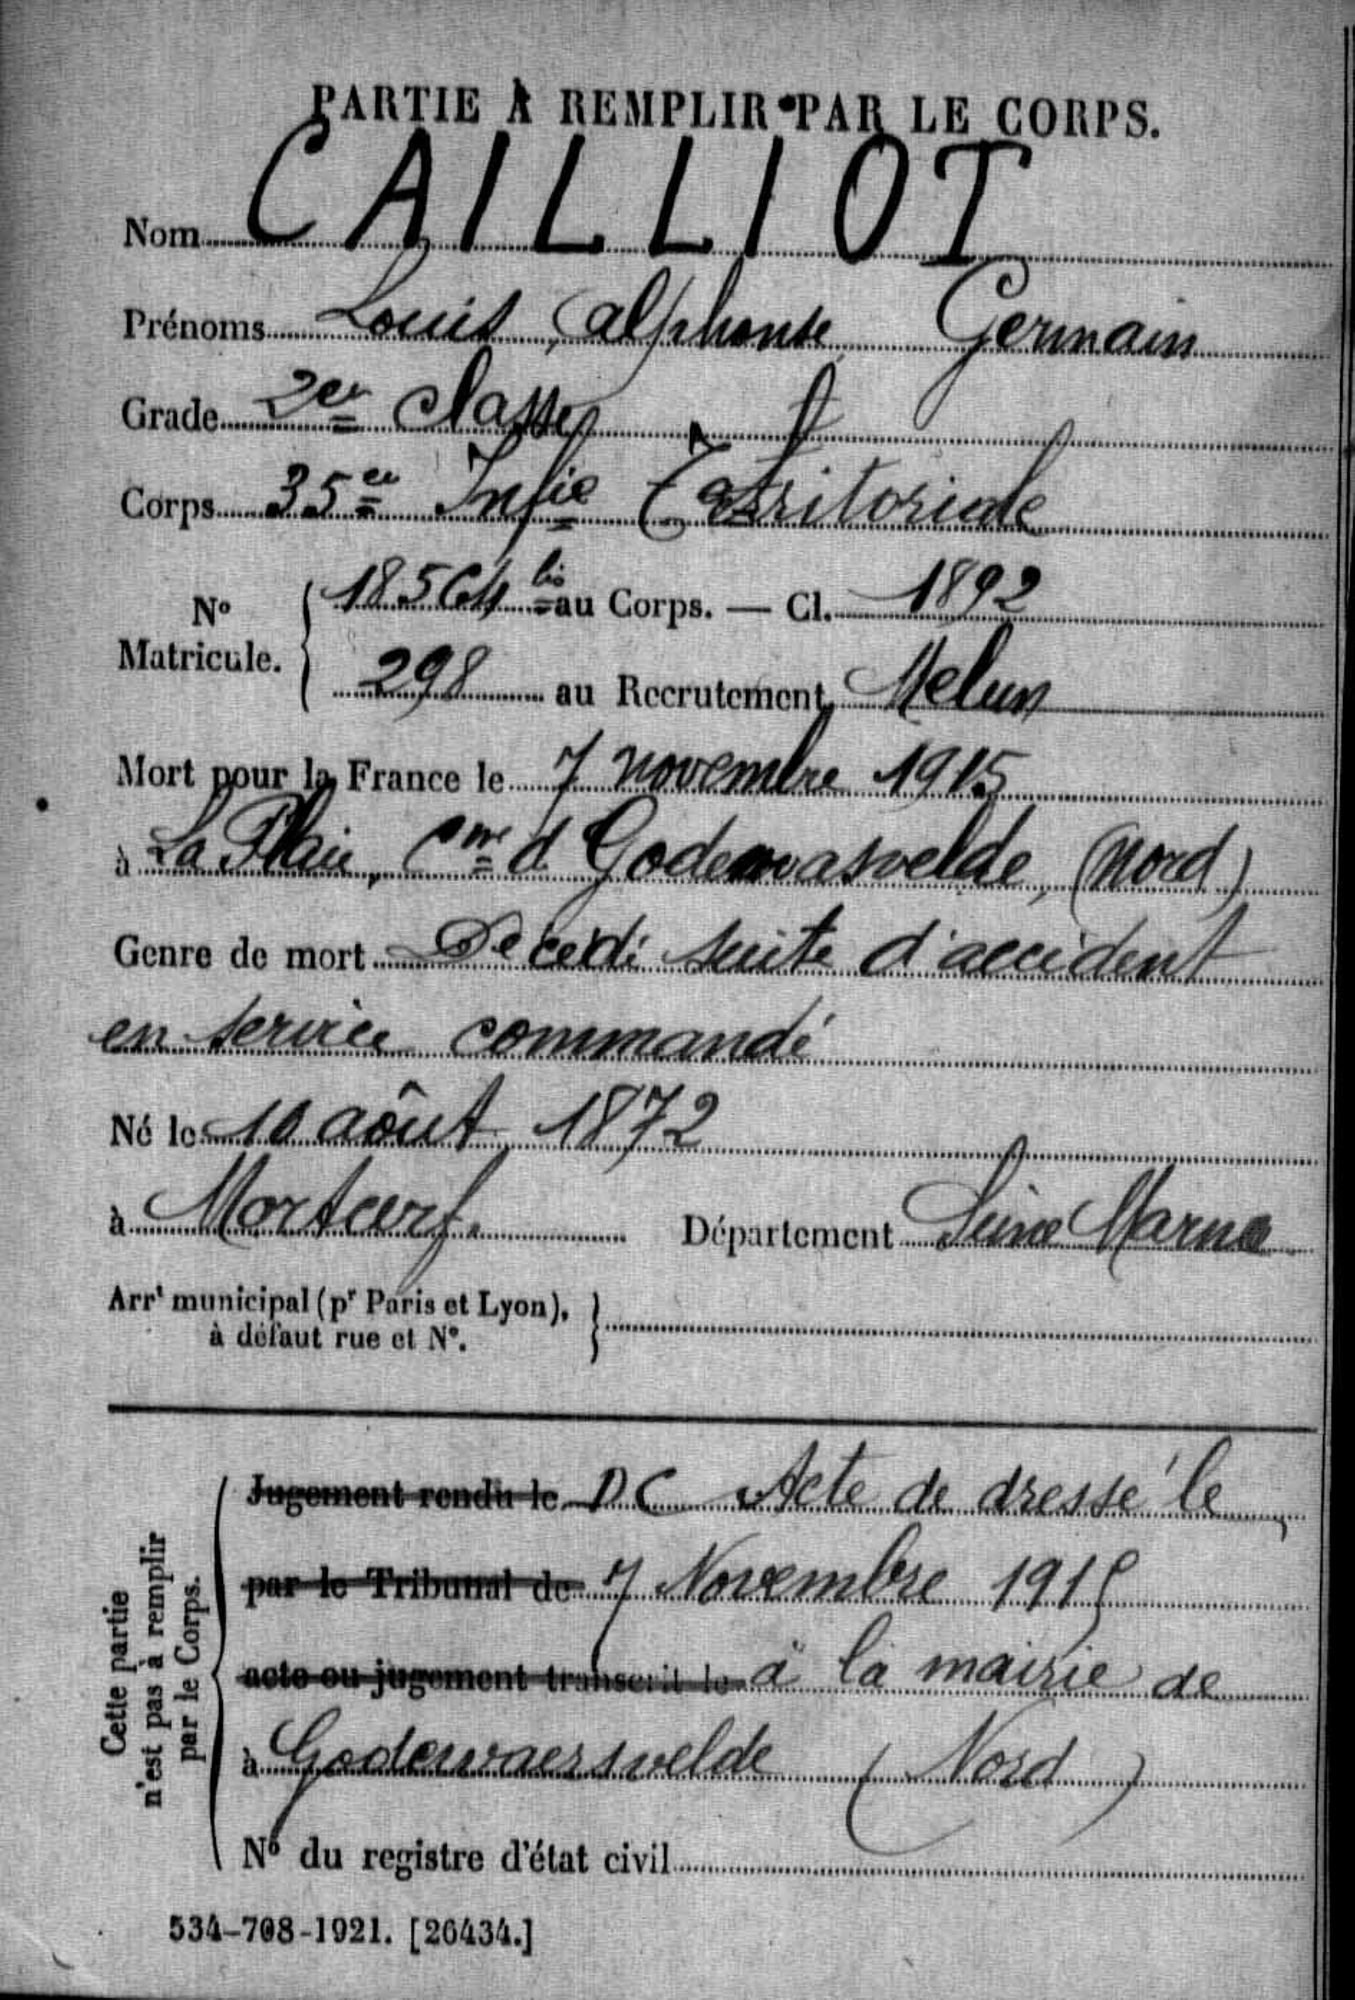 PARTIE À REMPLIR PAR LE CORPS.
Nom CAILLIOT
Prénoms Louis, Alphonse, Germain
Grade 2e Classe
Corps 35e Infie Territoriale
No Matricule. { 18564 bis au Corps. — Cl. 1892
298 au Recrutement Melun
Mort pour la France le 7 novembre 1915
à La Plaie, Cne d Godewasvelde, (Nord)
Genre de mort Décédé suite d'accident
en service commandé
Né le 10 aôut 1872
à Mortcerf. Département Seine Marne
Arrt municipal (pr Paris et Lyon), à défaut rue et No. }
Cette partie n'est pas à remplir par le Corps.
Jugement rendu le DC Acte de dressé le
par le Tribunal de 7 Novembre 1915
acte ou jugement transcrit le à la mairie de
à Godewaersvelde (Nord)
No du registre d'état civil
534-708-1921. [26434.]